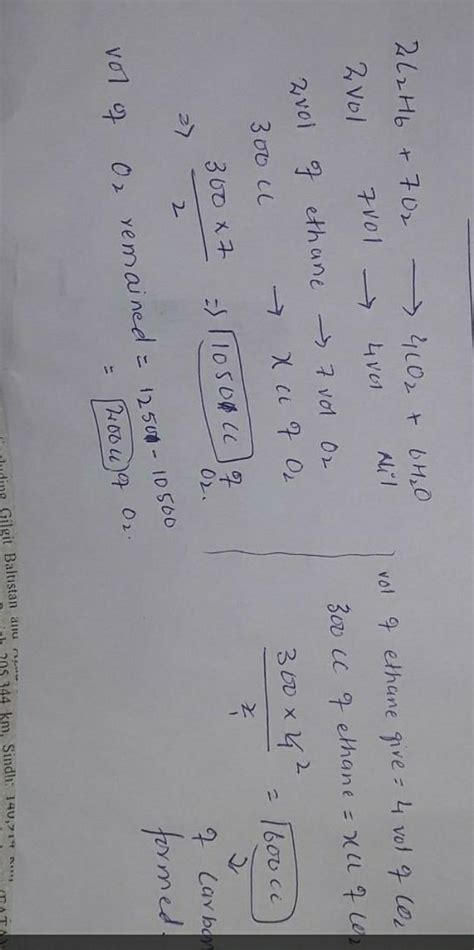 2C2H6 + 7O2 → 4CO2 + 6H2O
2vol 7vol → 4vol Nil
2vol of ethane → 7vol O2
300cc → x cc of O2
⇒ 300 × 7 / 2 ⇒ 1050cc of O2.
vol of O2 remained = 1250 - 10500
= 200cc of O2.
vol of ethane give = 4 vol of CO2
300cc of ethane = x cc of CO2
300 × 4 2 / 2 1 = 600cc
of carbon
formed.
including Gilgit Baltistan and
205,344 km, Sindh: 140,914 km,